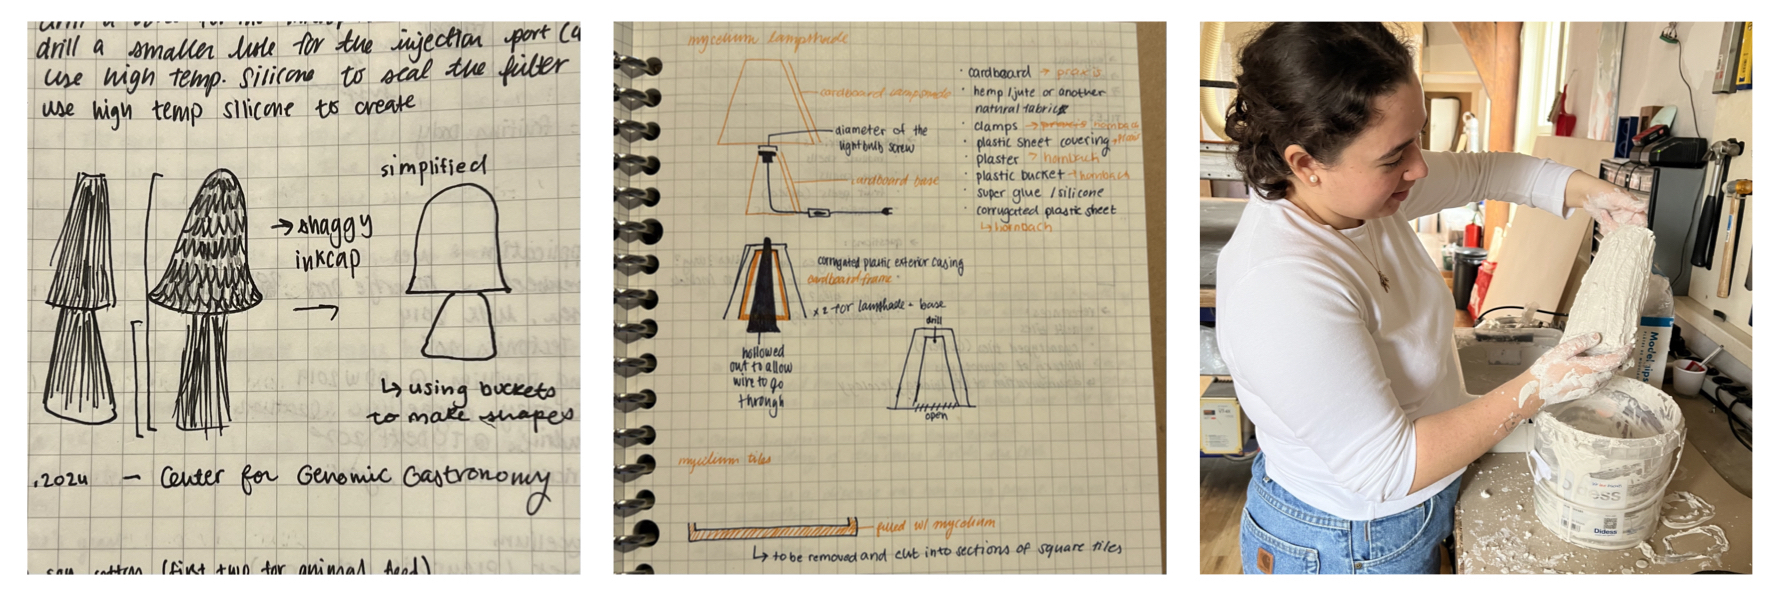 drill a smaller hole for the injection port (a
use high temp. silicone to seal the filter
use high temp silicone to create
simplified
→ shaggy
inkcap
↳ using buckets
to make shapes
.2024 — Center for Genomic Gastronomy
(first two for animal feed)
mycelium lampshade
cardboard
diameter of the
lightbulb screw
cardboard base
· cardboard → praxis
· hemp/jute or another
natural fabric
· clamps → praxis hornbach
· plastic sheet covering
· plaster → hornbach
· plastic bucket → hornbach
· super glue / silicone
· corrugated plastic sheet
↳ hornbach
corrugated plastic exterior casing
cardboard frame
x 2 for lampshade + base
hollowed
out to allow
wire to go
through
drill
open
mycelium tiles
filled w/ mycelium
↳ to be removed and cut into sections of square tiles
Model
Didess
Didess